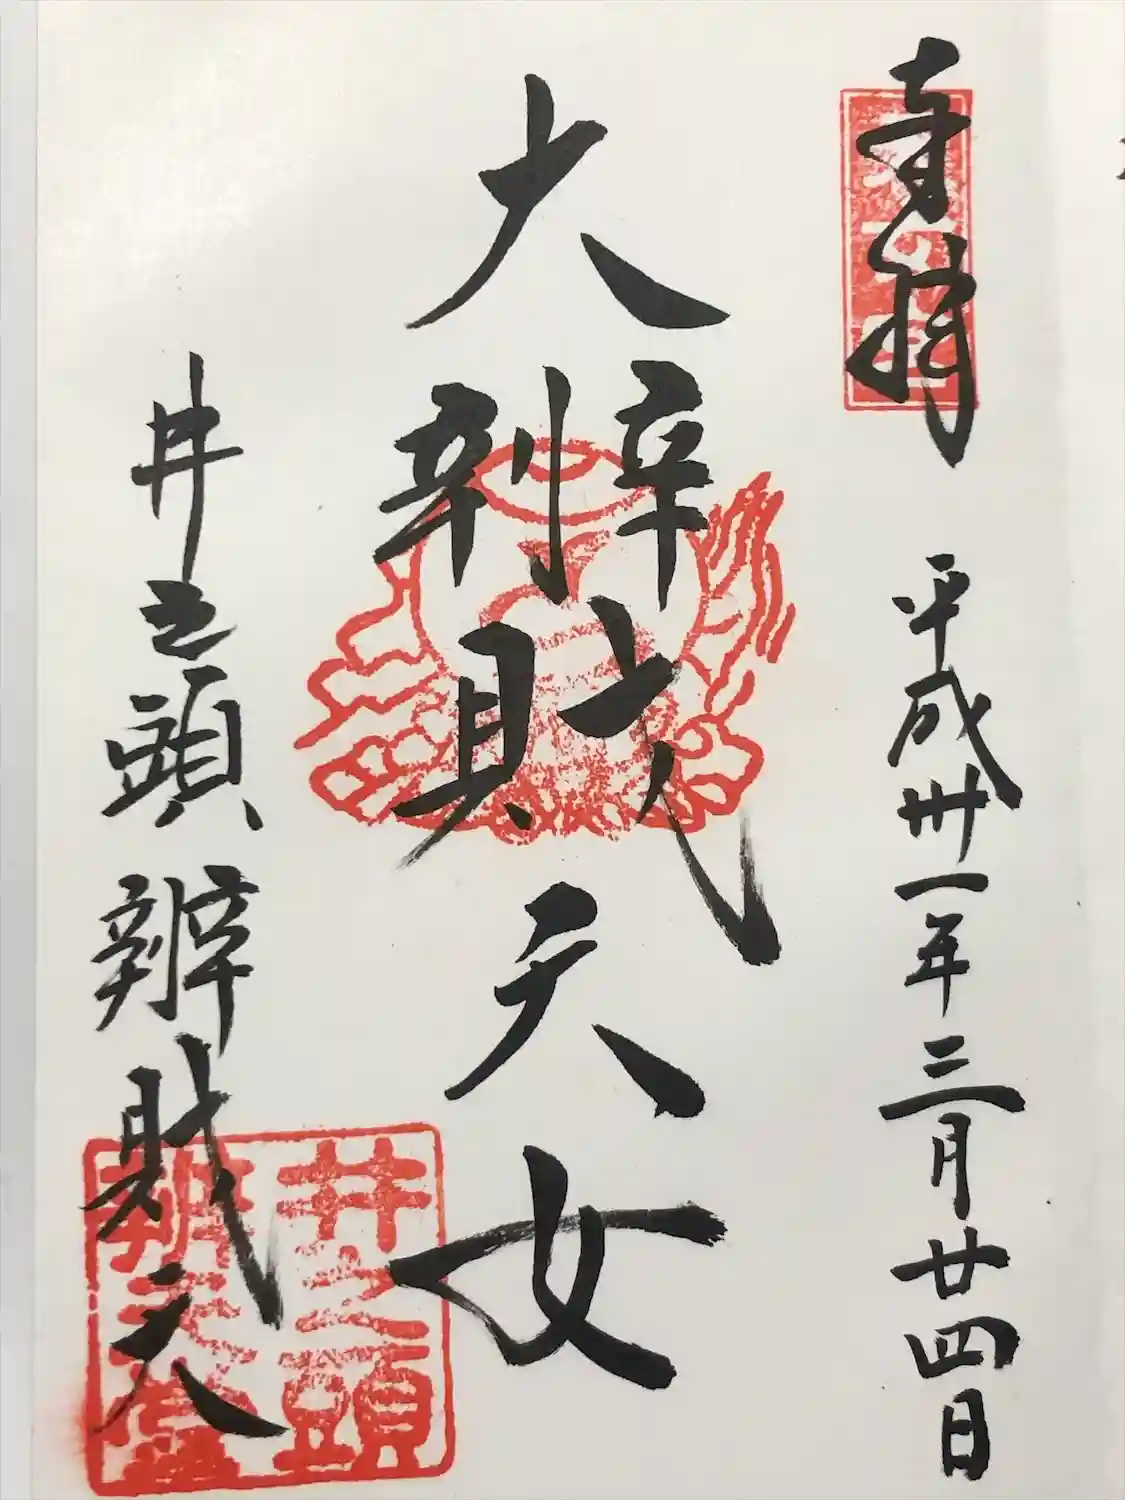 奉拝
平成卅一年三月廿四日
大辨財天女
井之頭辨財天
井之頭
辨天堂